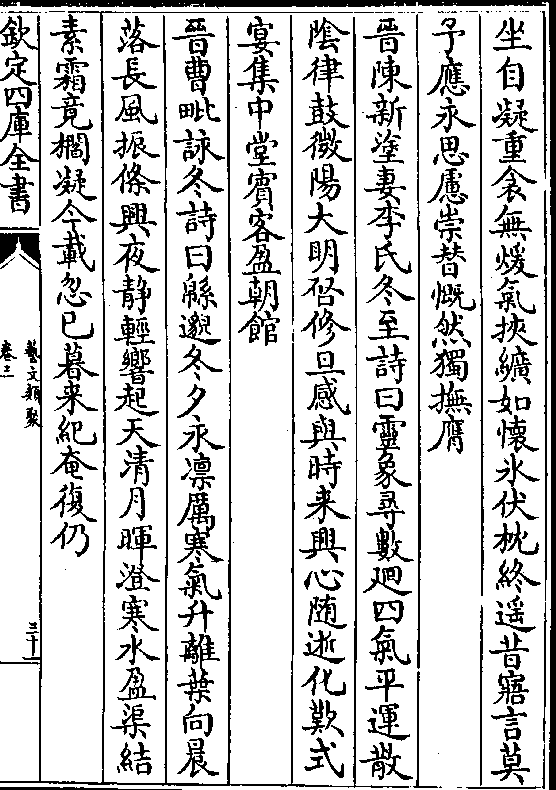 坐自凝重衾無煖氣挾纊如懷氷伏枕終遥昔寤言莫
予應永思慮崇替慨然獨撫膺
晉陳新塗妻李氏冬至詩曰靈象尋數廻四氣平運散
陰律鼓微陽大明啓修旦感與時来興心随逝化歎式
宴集中堂賓客盈朝館
晉曹毗詠冬詩曰緜邈冬夕永凛厲寒氣升離葉向晨
落長風振條興夜静輕響起天清月暉澄寒水盈渠結
素霜竟櫩凝今載忽已暮来紀奄復仍
欽定四庫全書
藝文類聚
卷三
三十一